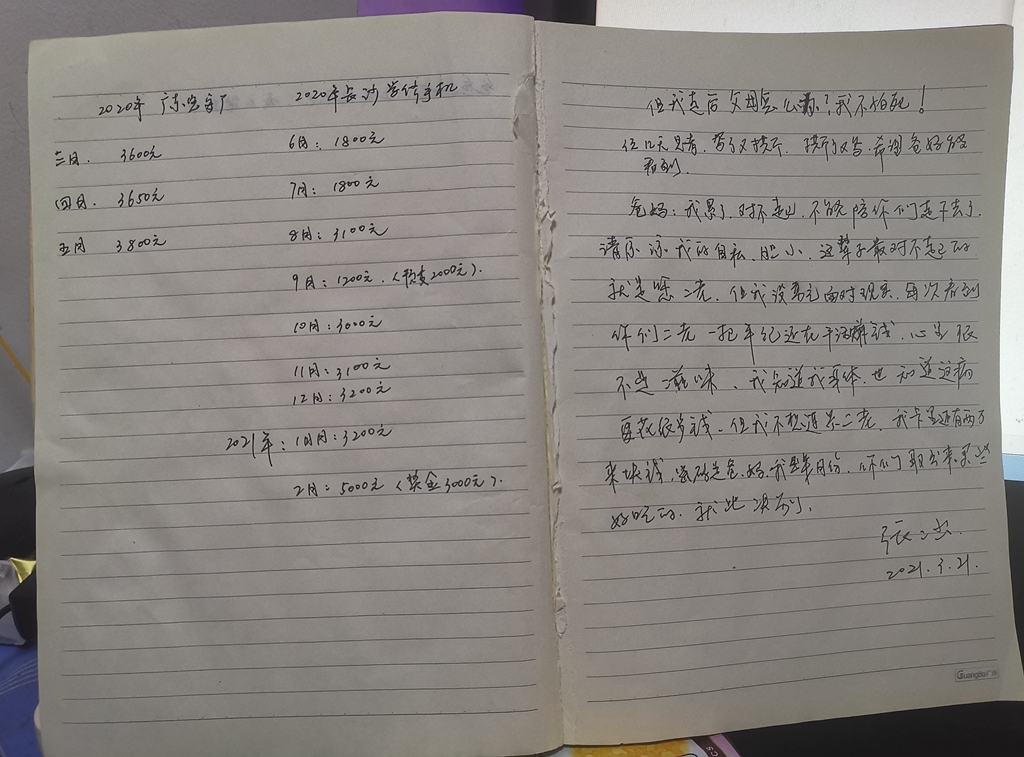 2020年 广东电子厂
三月. 3600元
四月. 3650元
五月 3800元
2020年长沙学修手机
6月：1800元
7月：1800元
8月：3100元
9月：1200元.（预支2000元）.
10月：3000元
11月：3100元
12月：3200元
2021年：1月：3200元
2月：5000元（奖金3000元）.
但我走后父母怎么办？我不怕死！
这几天只有，写了又撕下，撕下又写.希望爸妈能
看到.
爸妈：我累了，对不起，不能陪你们走下去了.
请原谅我的自私、胆小、这辈子最对不起的
就是您二老，但我没勇气面对现实，每次看到
你们二老一把年纪还在干活赚钱，心里很
不是滋味、我知道我身体，也知道这病
要花很多钱.但我不想连累二老，我卡里还有两万
来块钱，密码是爸.妈.我出生年月份，你们取出来.买些
好吃的.就此决别.
2021.3.21.
Guangbo 广博